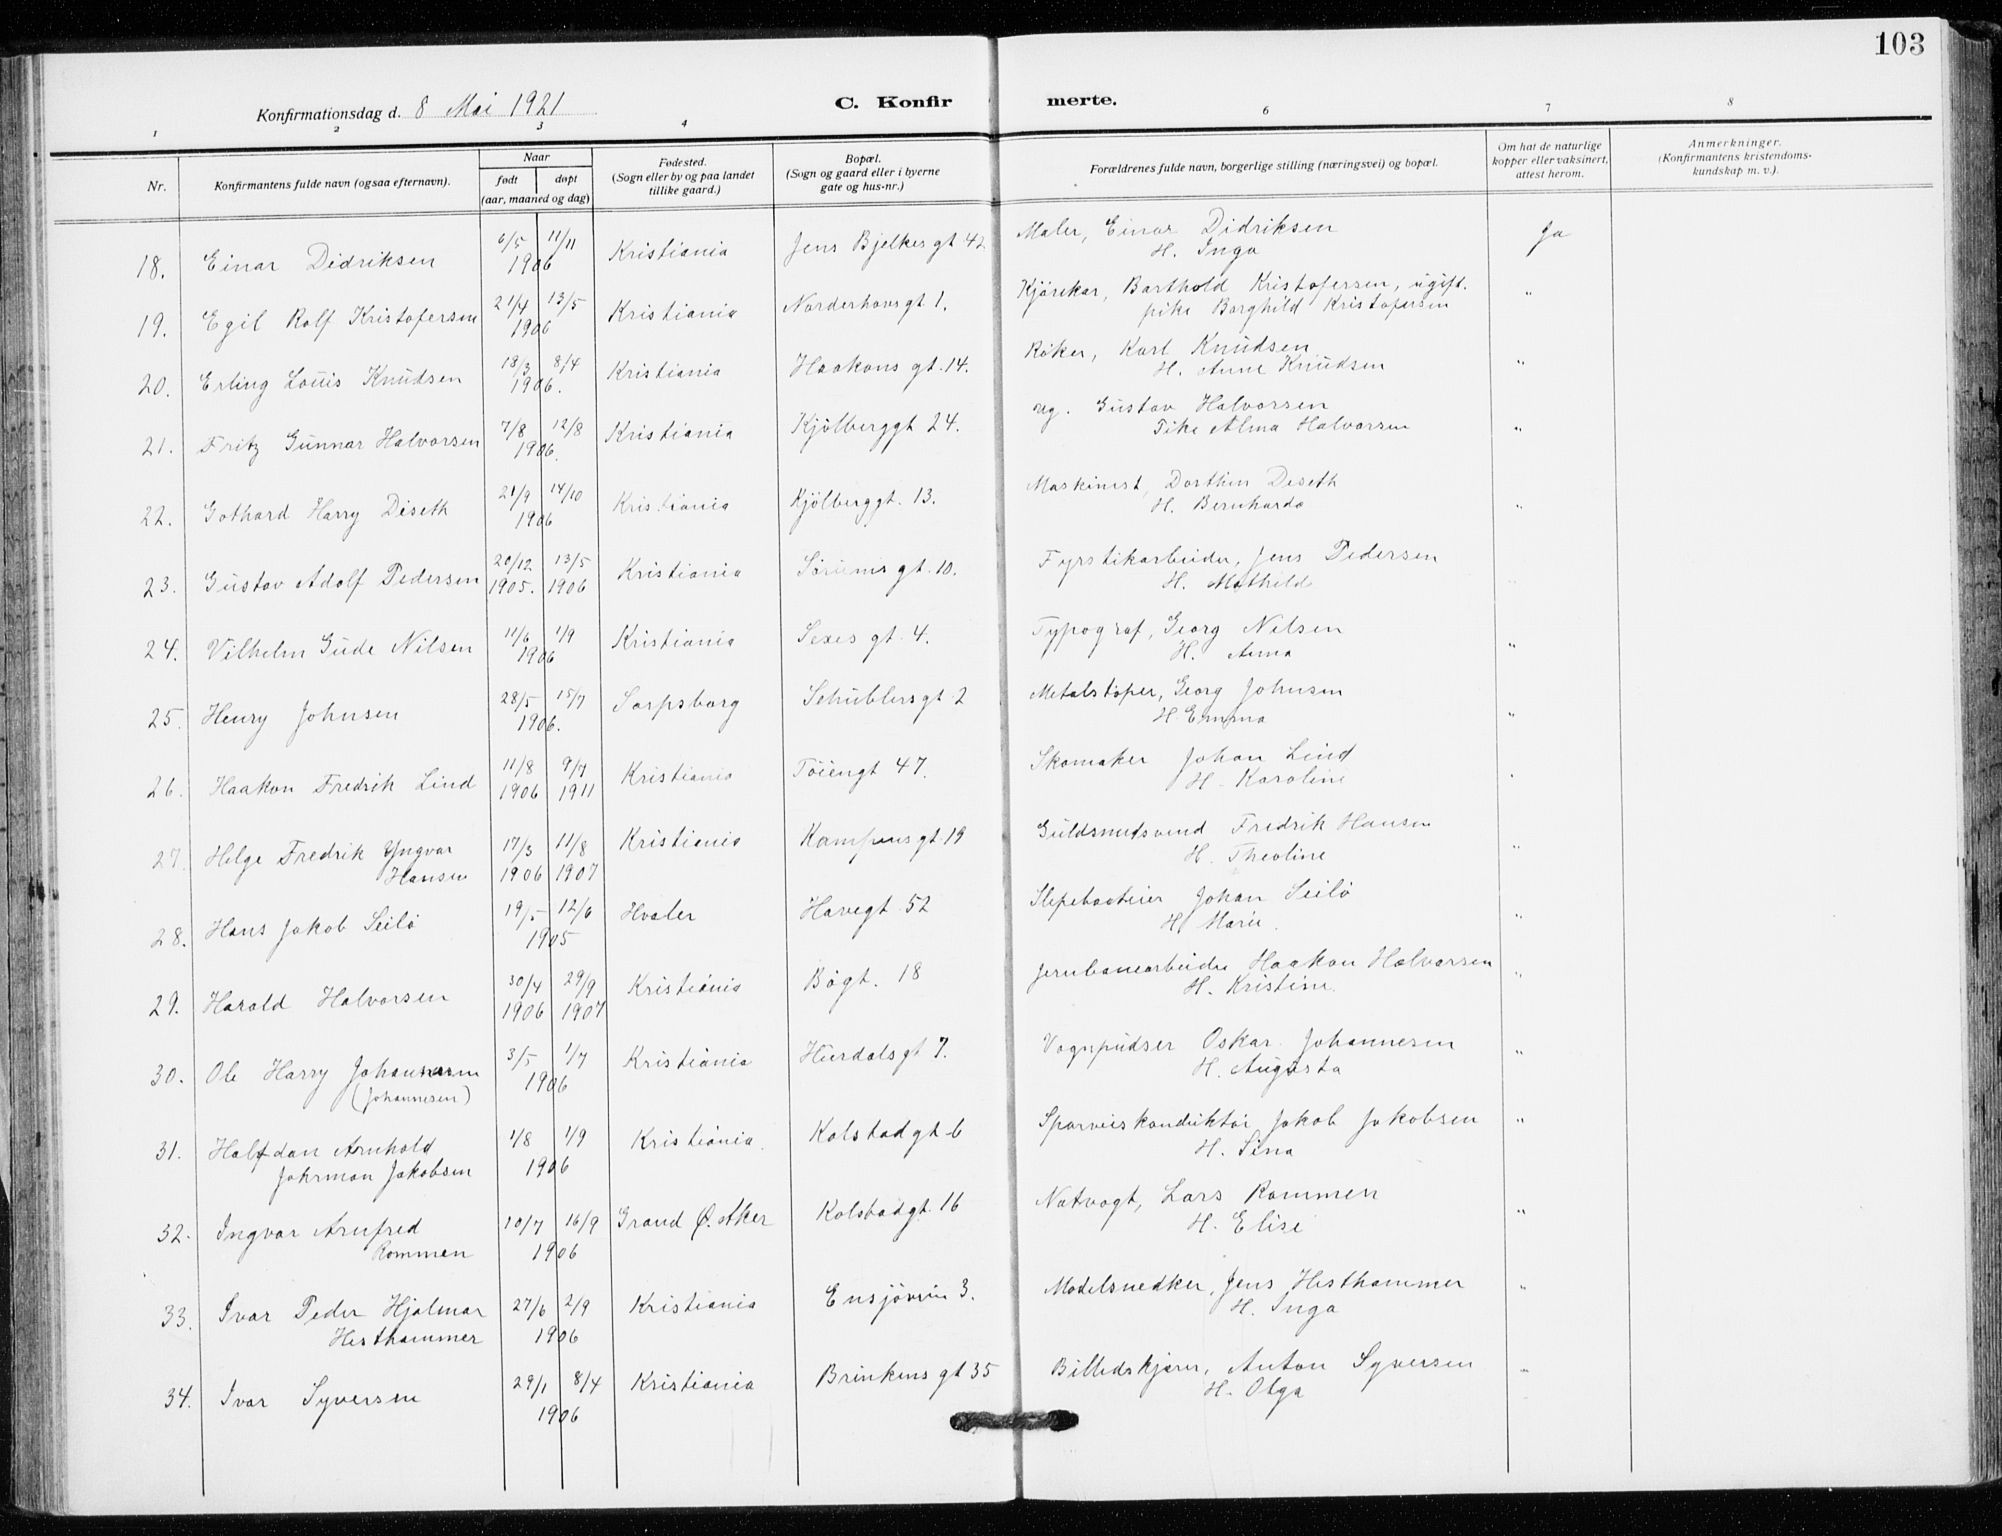 103
Konfirmationsdag d. 8 Mai 1921
C. Konfir merte.
1 2 3 4 6 7 8
Nr.
Konfirmantens fulde navn (ogsaa efternavn).
Naar
født døpt
(aar, maaned og dag)
Fødested.
(Sogn eller by og paa landet
tillike gaard.)
Bopæl.
(Sogn og gaard eller i byerne
gate og hus-nr.)
Forældrenes fulde navn, borgerlige stilling (næringsvei) og bopæl.
Om hat de naturlige
kopper eller vaksinert,
attest herom.
Anmerkninger.
(Konfirmantens kristendoms-
kundskap m. v.).
18. Einar Didriksen 6/5 11/11 Kristiania Jens Bjelkes gt 42 Maler, Einar Didriksen Ja
1906 H. Inga
19. Egil Rolf Kristofersen 21/4 13/5 Kristiania Norderhovsgt 1. Kjørekar, Barthold Kristofersen, ugift. "
1906 pike Borghild Kristofersen
20. Erling Louis Knudsen 18/3 8/4 Kristiania Haakons gt. 14. Røker, Karl Knudsen "
1906. H. Anne Knudsen
21. Fritz Gunnar Halvorsen 7/8 12/8 Kristiania Kjölberggt 24. ug. Gustav Halvorsen "
1906. Pike Alma Halvorsen
22. Gothard Harry Diseth 21/9 14/10 Kristiania Kjölberggt. 13. Maskinist, Dorthin Diseth "
1906 H. Bernharda
23. Gustav Adolf Pedersen 20/12 13/5 Kristiania Sörums gt. 10. Fyrstikarbeider, Jens Pedersen "
1905. 1906 H. Mathild
24. Vilhelm Gude Nilsen 11/6 1/9 Kristiania Sexes gt. 4. Typograf, Georg Nilsen "
1906 H. Anna
25. Henry Johnsen 28/5 15/7 Sarpsborg Schüblersgt. 2 Metalstöper, Georg Johnsen "
1906. H. Emma
26. Haakon Fredrik Lind 11/8 9/7 Kristiania Töiengt 47. Skomaker Johan Lind
1906 1911 H. Karoline
27. Helge Fredrik Yngvar 17/3 11/8 Kristiania Kampens gt 19 Guldsmedsvend Fredrik Hansen "
Hansen 1906 1907 H. Theoline
28. Hans Jakob Seilö 19/5 12/6 Hvaler Havegt 52 Slepebaateier Johan Seilö "
1905 H. Marie.
29. Harald Halvorsen 30/4 29/9 Kristiania Bögt. 18 Jernbanearbeider Haakon Halvorsen "
1906 1907 H. Kristine.
30. Ole Harry Johannesen 3/5 1/7 Kristiania Hurdalsgt 7. Vognpudser Oskar Johannesen "
(Johannesen) 1906 H. Augusta
31. Halfdan Arnhold 1/8 1/9 Kristiania. Kolstadgt 6 Sporveiskonduktör Jakob Jakobsen "
Johrman Jakobsen 1906 H. Sina
32. Ingvar Arnfred 10/7 16/9 Grand Ø. Aker Kolstadgt. 16 Natvogt, Lars Rommen "
Rommen 1906 H. Elise
33. Ivar Peder Hjalmar 27/6 2/9 Kristiania Ensjöveien 3. Modelsnedker, Jens Hesthammer "
Hesthammer 1906 H. Inga
34. Ivar Syversen 29/1 8/4 Kristiania Brinkens gt 35 Billedskjærer, Anton Syversen "
1906 H. Olga